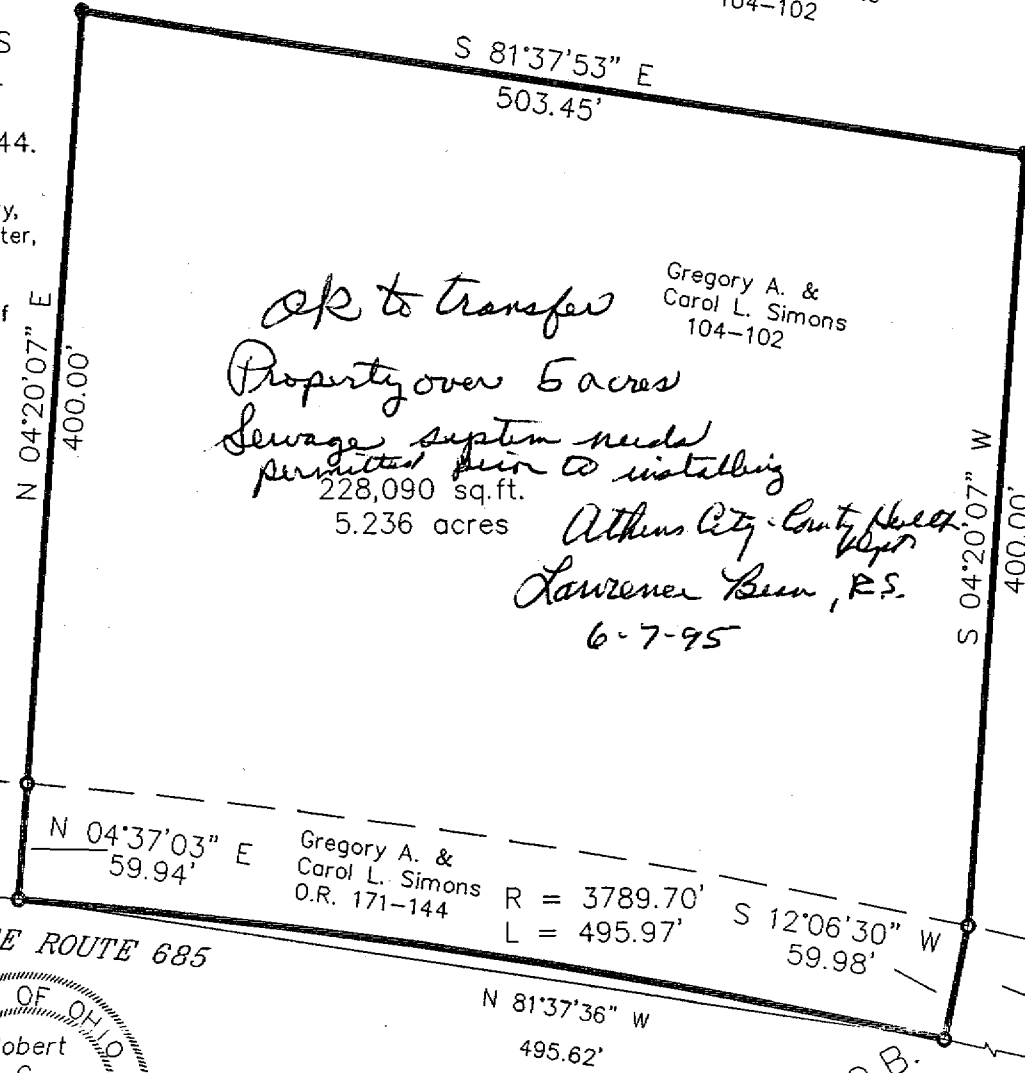 104-102
S
S 81°37'53" E
503.45'
44.
y,
ter,
f
N 04°20'07" E
400.00'
Gregory A. &
Carol L. Simons
104-102
ok to transfer
Property over 5 acres
Sewage system needs
permitted prior to installing
228,090 sq.ft.
5.236 acres
Athens City-County Health
Dept
Lawrence Bean, R.S.
6-7-95
S 04°20'07" W
400.00'
N 04°37'03" E
59.94'
Gregory A. &
Carol L. Simons
O.R. 171-144
R = 3789.70'
L = 495.97'
S 12°06'30" W
59.98'
E ROUTE 685
N 81°37'36" W
495.62'
OF OHIO
obert
B.